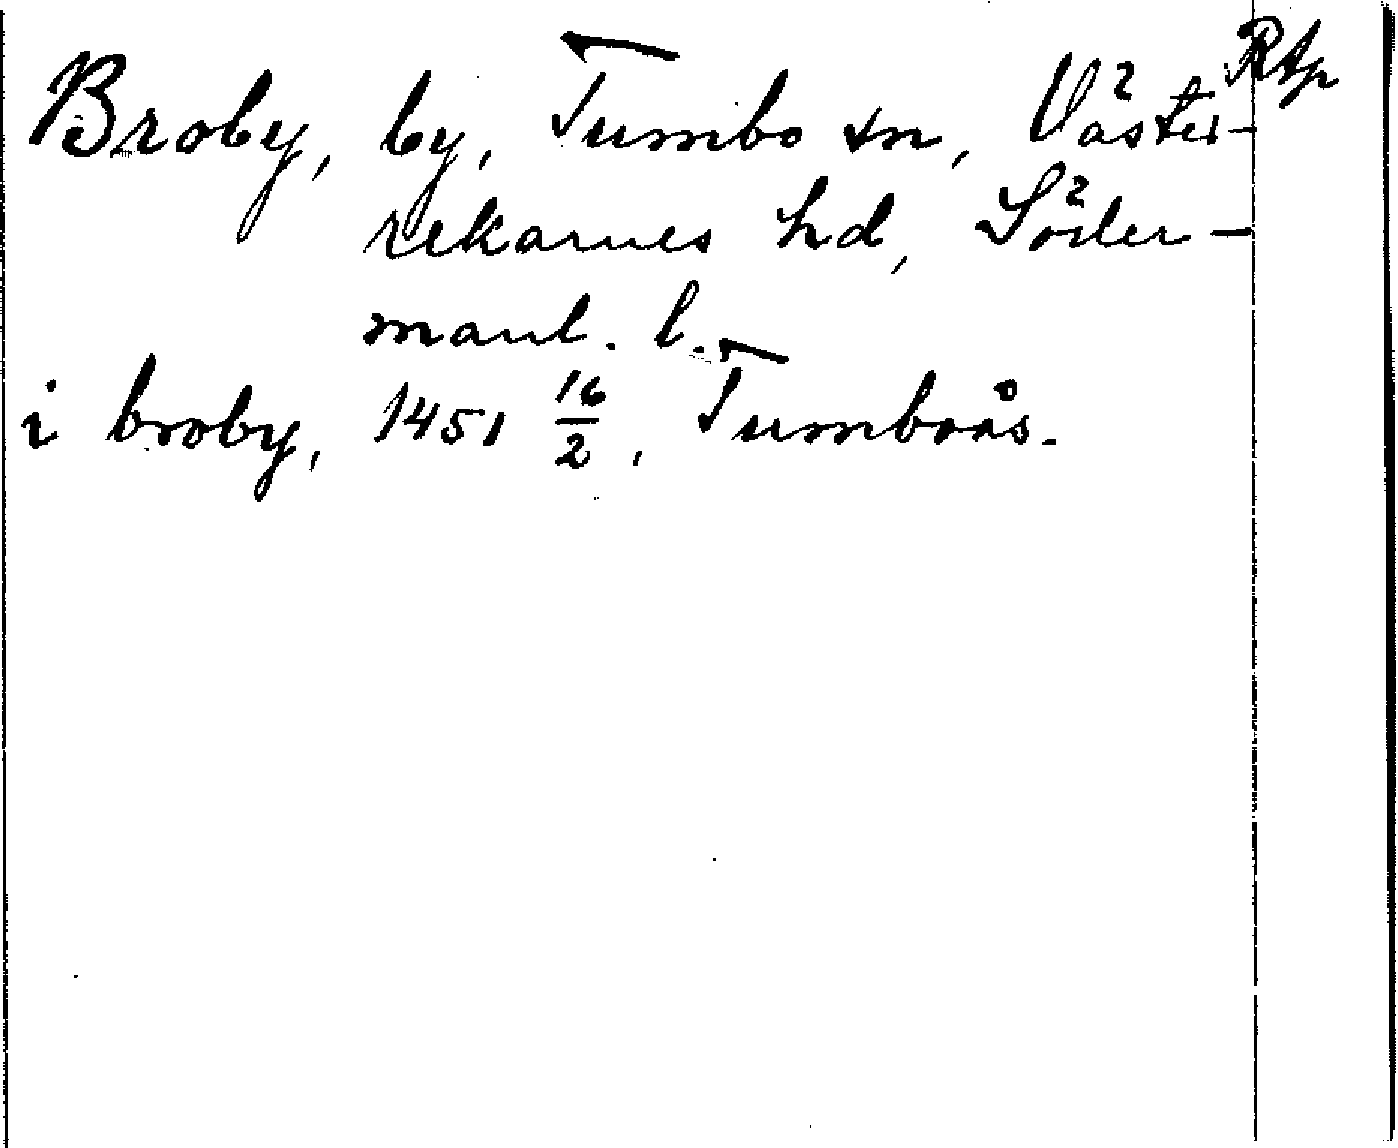 Rtp
Broby, by, Tumbo sn, Väster-
rekarnes hd, Söder-
manl. l.
i broby, 1451 16/2, Tumboås.